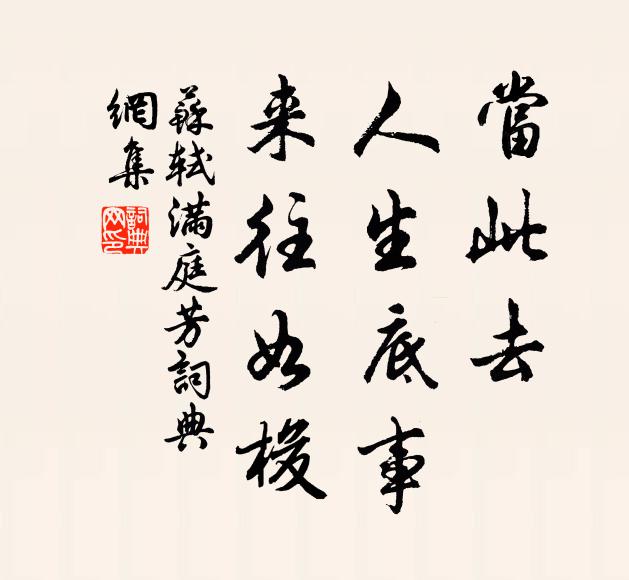 當此去
人生底事
来往如梭
蘇軾滿庭芳詞典
網集
詞典網印